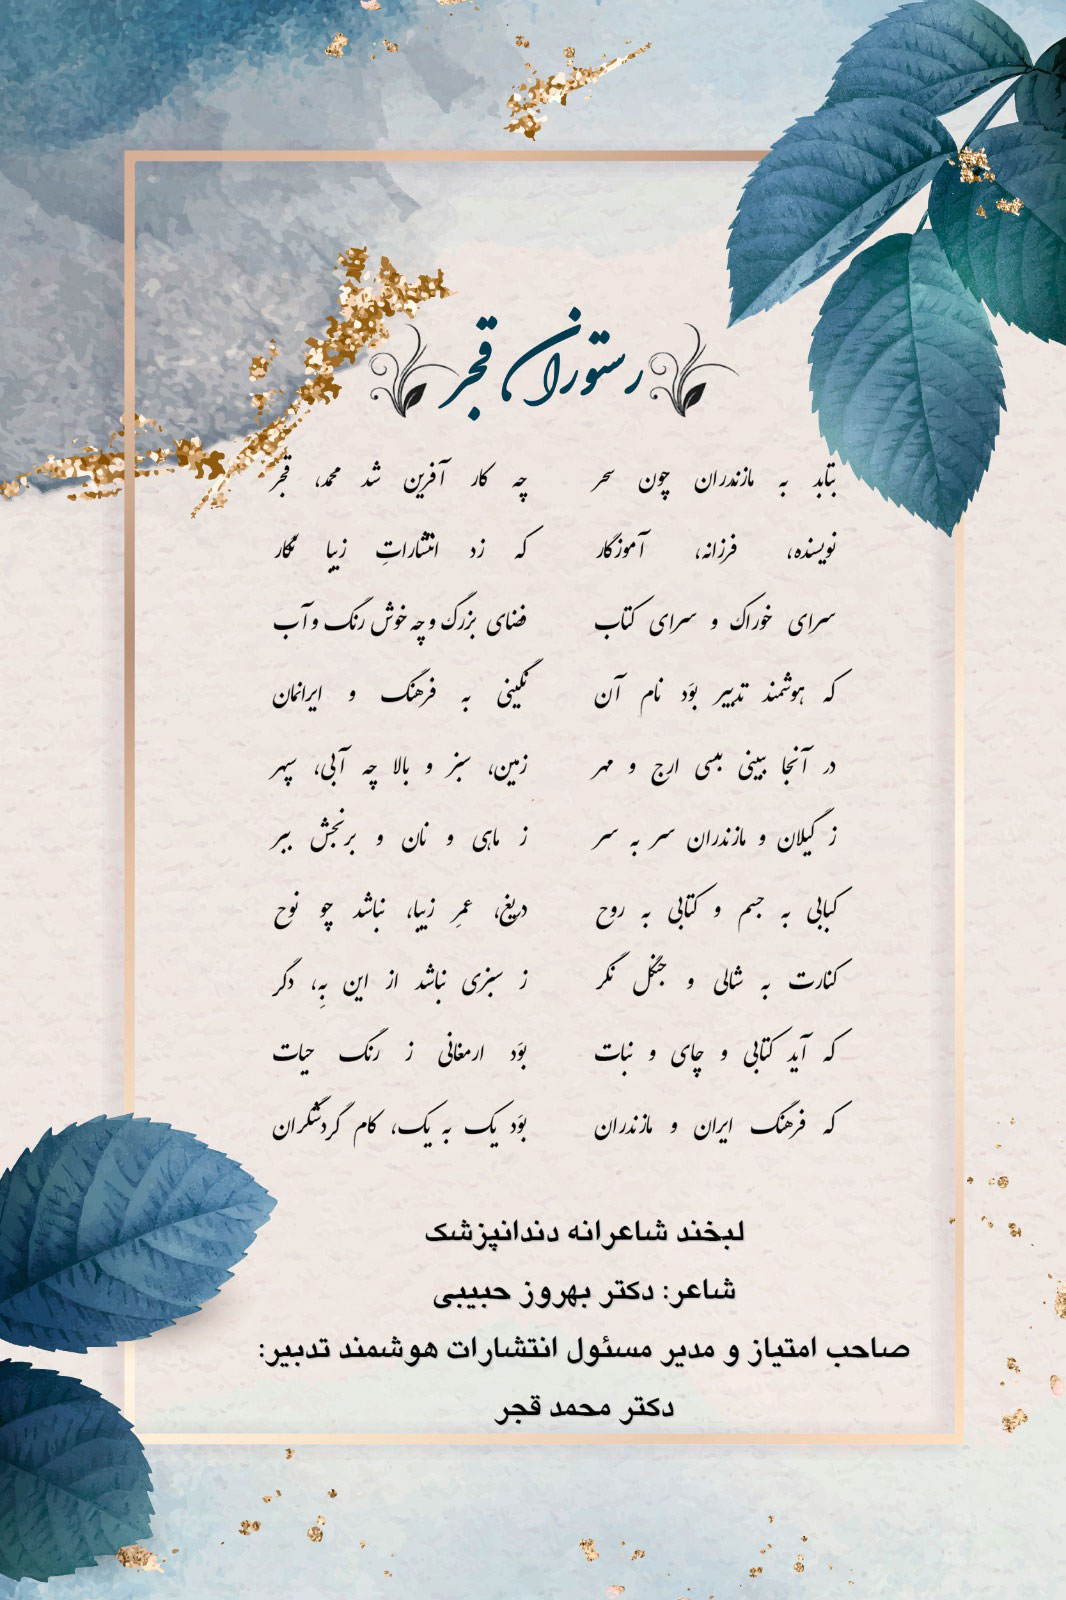 رستوران قجر
بتابد به مازندران چون سحر چه کار آفرین شد محمد، قجر
نویسنده، فرزانه، آموزگار که زد انتشاراتِ زیبا نگار
سرای خوراک و سرای کتاب فضای بزرگ و چه خوش رنگ و آب
که هوشمند تدبیر بوَد نام آن نگینی به فرهنگ و ایرانمان
در آنجا ببینی بسی ارج و مهر زمین، سبز و بالا چه آبی، سپهر
ز گیلان و مازندران سر به سر ز ماهی و نان و برنجش ببر
کبابی به جسم و کتابی به روح دریغ، عمرِ زیبا، نباشد چو نوح
کنارت به شالی و جنگل نگر ز سبزی نباشد از این بِه، دگر
که آید کتابی و چای و نبات بوَد ارمغانی ز رنگ حیات
که فرهنگ ایران و مازندران بوَد یک به یک، کام گردشگران
لبخند شاعرانه دندانپزشک
شاعر: دکتر بهروز حبیبی
صاحب امتیاز و مدیر مسئول انتشارات هوشمند تدبیر:
دکتر محمد قجر